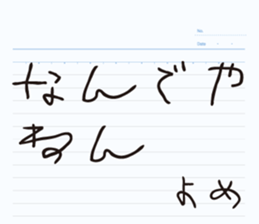 No.
Date ・ ・
なんでや
ねん
よめ